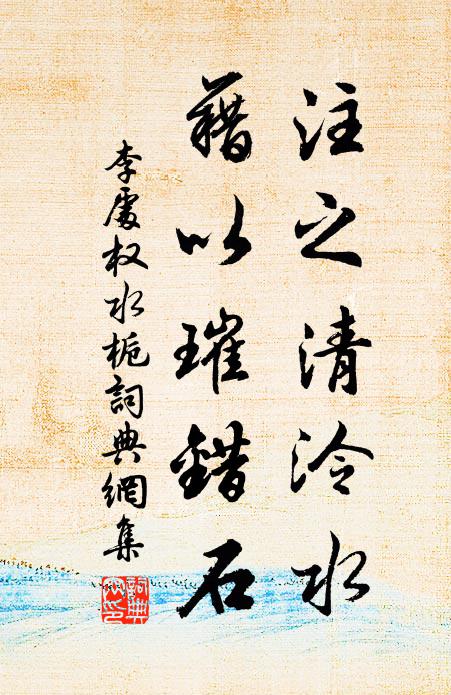 注之清泠水
藉以璀錯石
李處权水栀詞典網集